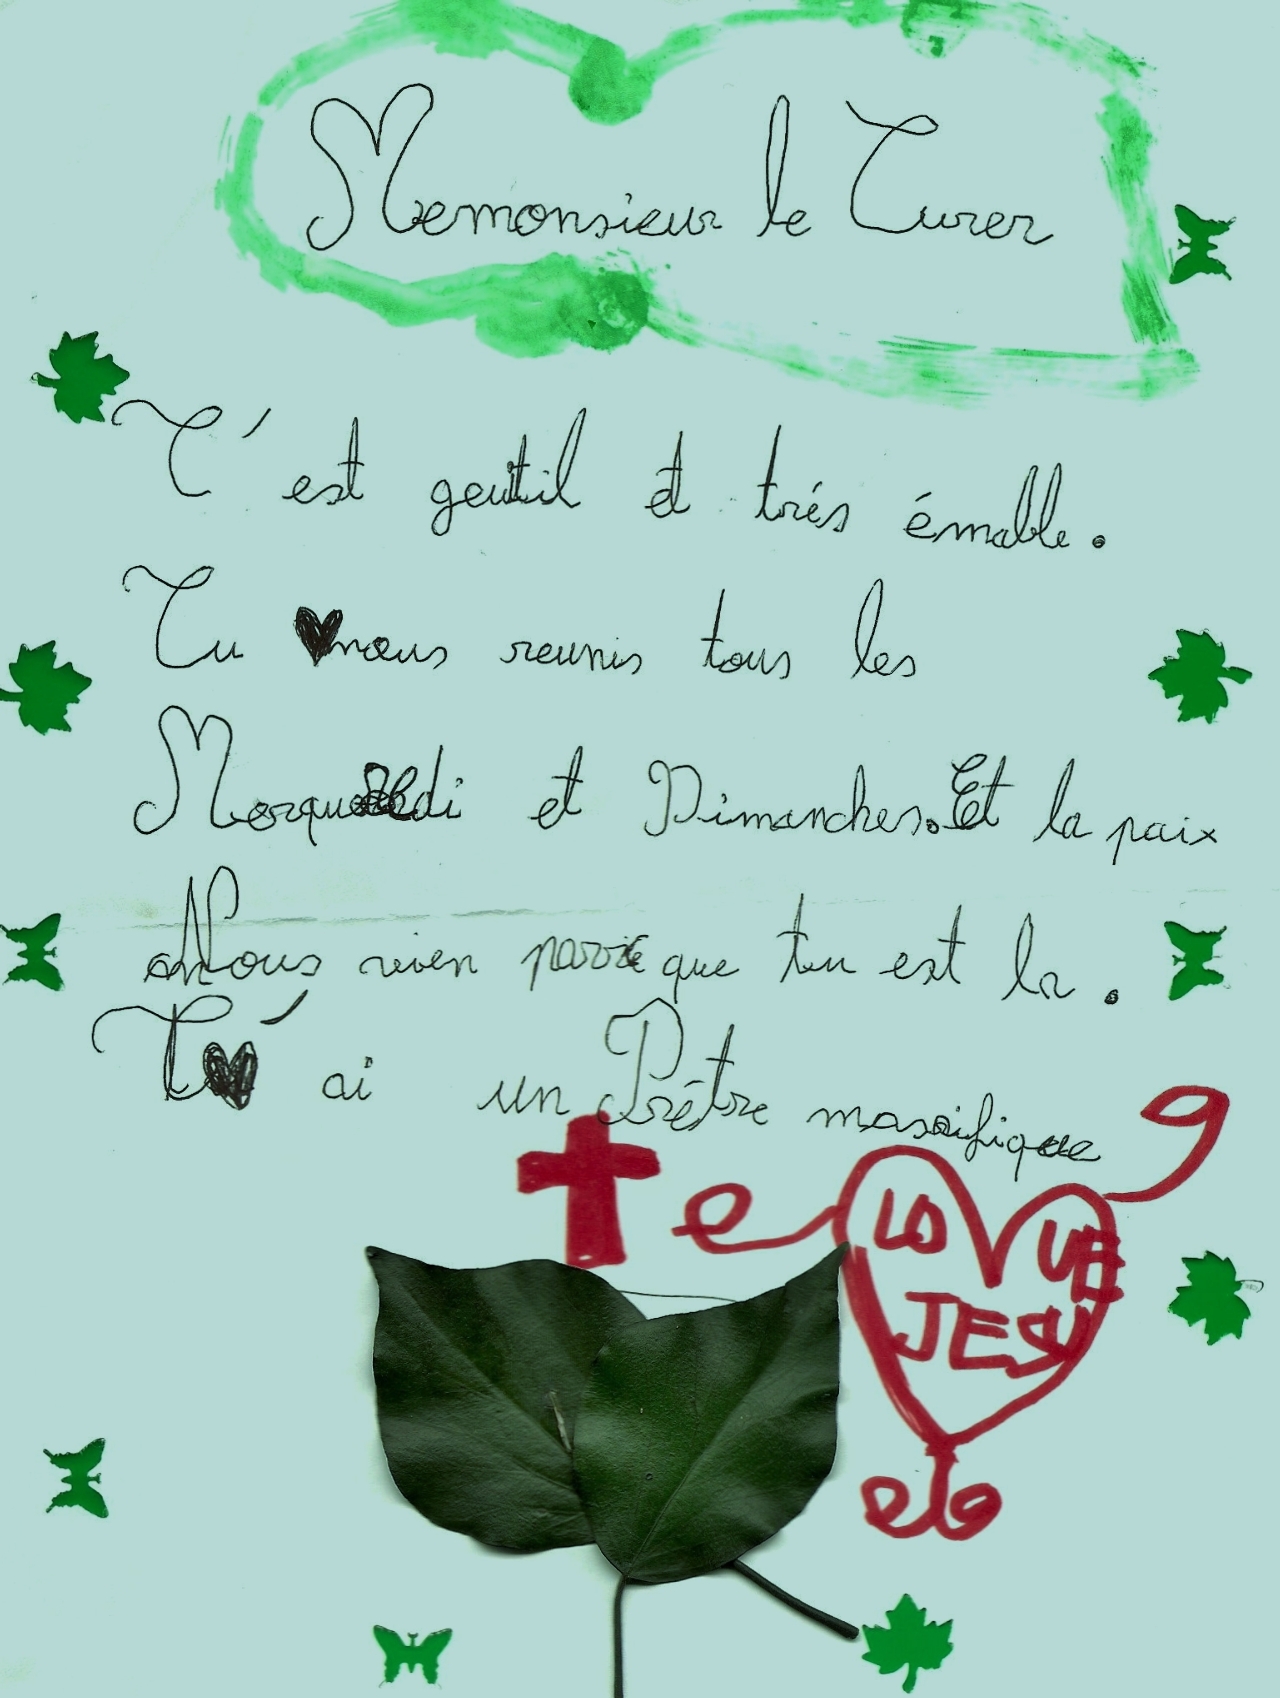 Memonsieur le Curer
C'est gentil et trés émable.
Tu nous reunis tous les
et Dimanches. Et la paix
Nous vien parce que tu est la.
T'ai un Prétre masifique
LOVE
JESU